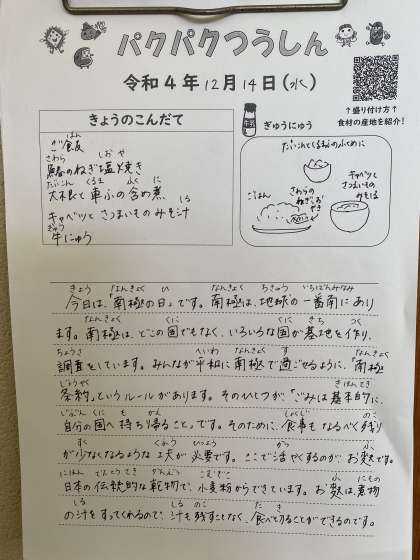 パクパクつうしん
令和4年12月14日(水)
↑盛り付け方↑
食材の産地を紹介!
きょうのこんだて
ご飯
鰆のねぎ塩焼き
大根と車ふの含め煮
キャベツとさつまいものみそ汁
牛にゅう
ぎゅうにゅう
だいこんとくるまふのふくめに
ごはん
さわらのねぎしおやき
キャベツとさつまいものみそしる
今日は、「南極の日」です。南極は、地球の一番南にあり
ます。南極は、どこの国でもなく、いろいろな国が基地を作り、
調査をしています。みんなが平和に南極で過ごせるように、「南極
条約」というルールがあります。そのひとつが、「ごみは基本的に、
自分の国へ持ち帰ること」です。そのために、食事もなるべく残り
が少なくなるような工夫が必要です。ここで活やくするのが、お麩です。
日本の伝統的な乾物で、小麦粉からできています。お麩は、煮物
の汁をすってくれるので、汁も残すことなく、食べ切ることができるのです。